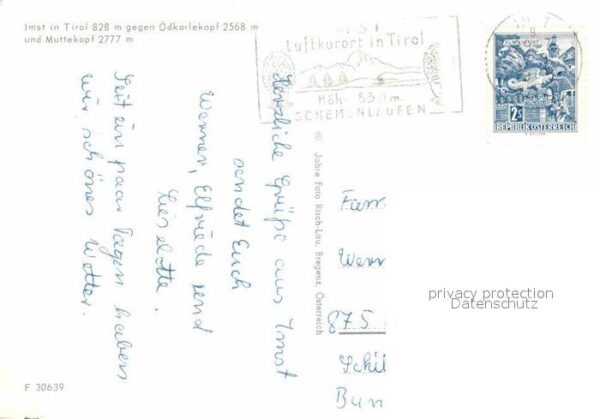 Imst in Tirol 828 m gegen Ödkarlekopf 2568 m
und Muttekopf 2777 m
IMST
Luftkurort in Tirol
Höhe 830 m
SCHEMENLAUFEN
2S
REPUBLIK ÖSTERREICH
Herzliche Grüße aus Imst
sendet Euch
Werner, Elfriede und
Lieselotte.
Seit ein paar Tagen haben
wir schönes Wetter.
80 Jahre Foto Risch-Lau, Bregenz, Österreich
Fam
Wern
875
Schil
Bun
privacy protection
Datenschutz
F 30639